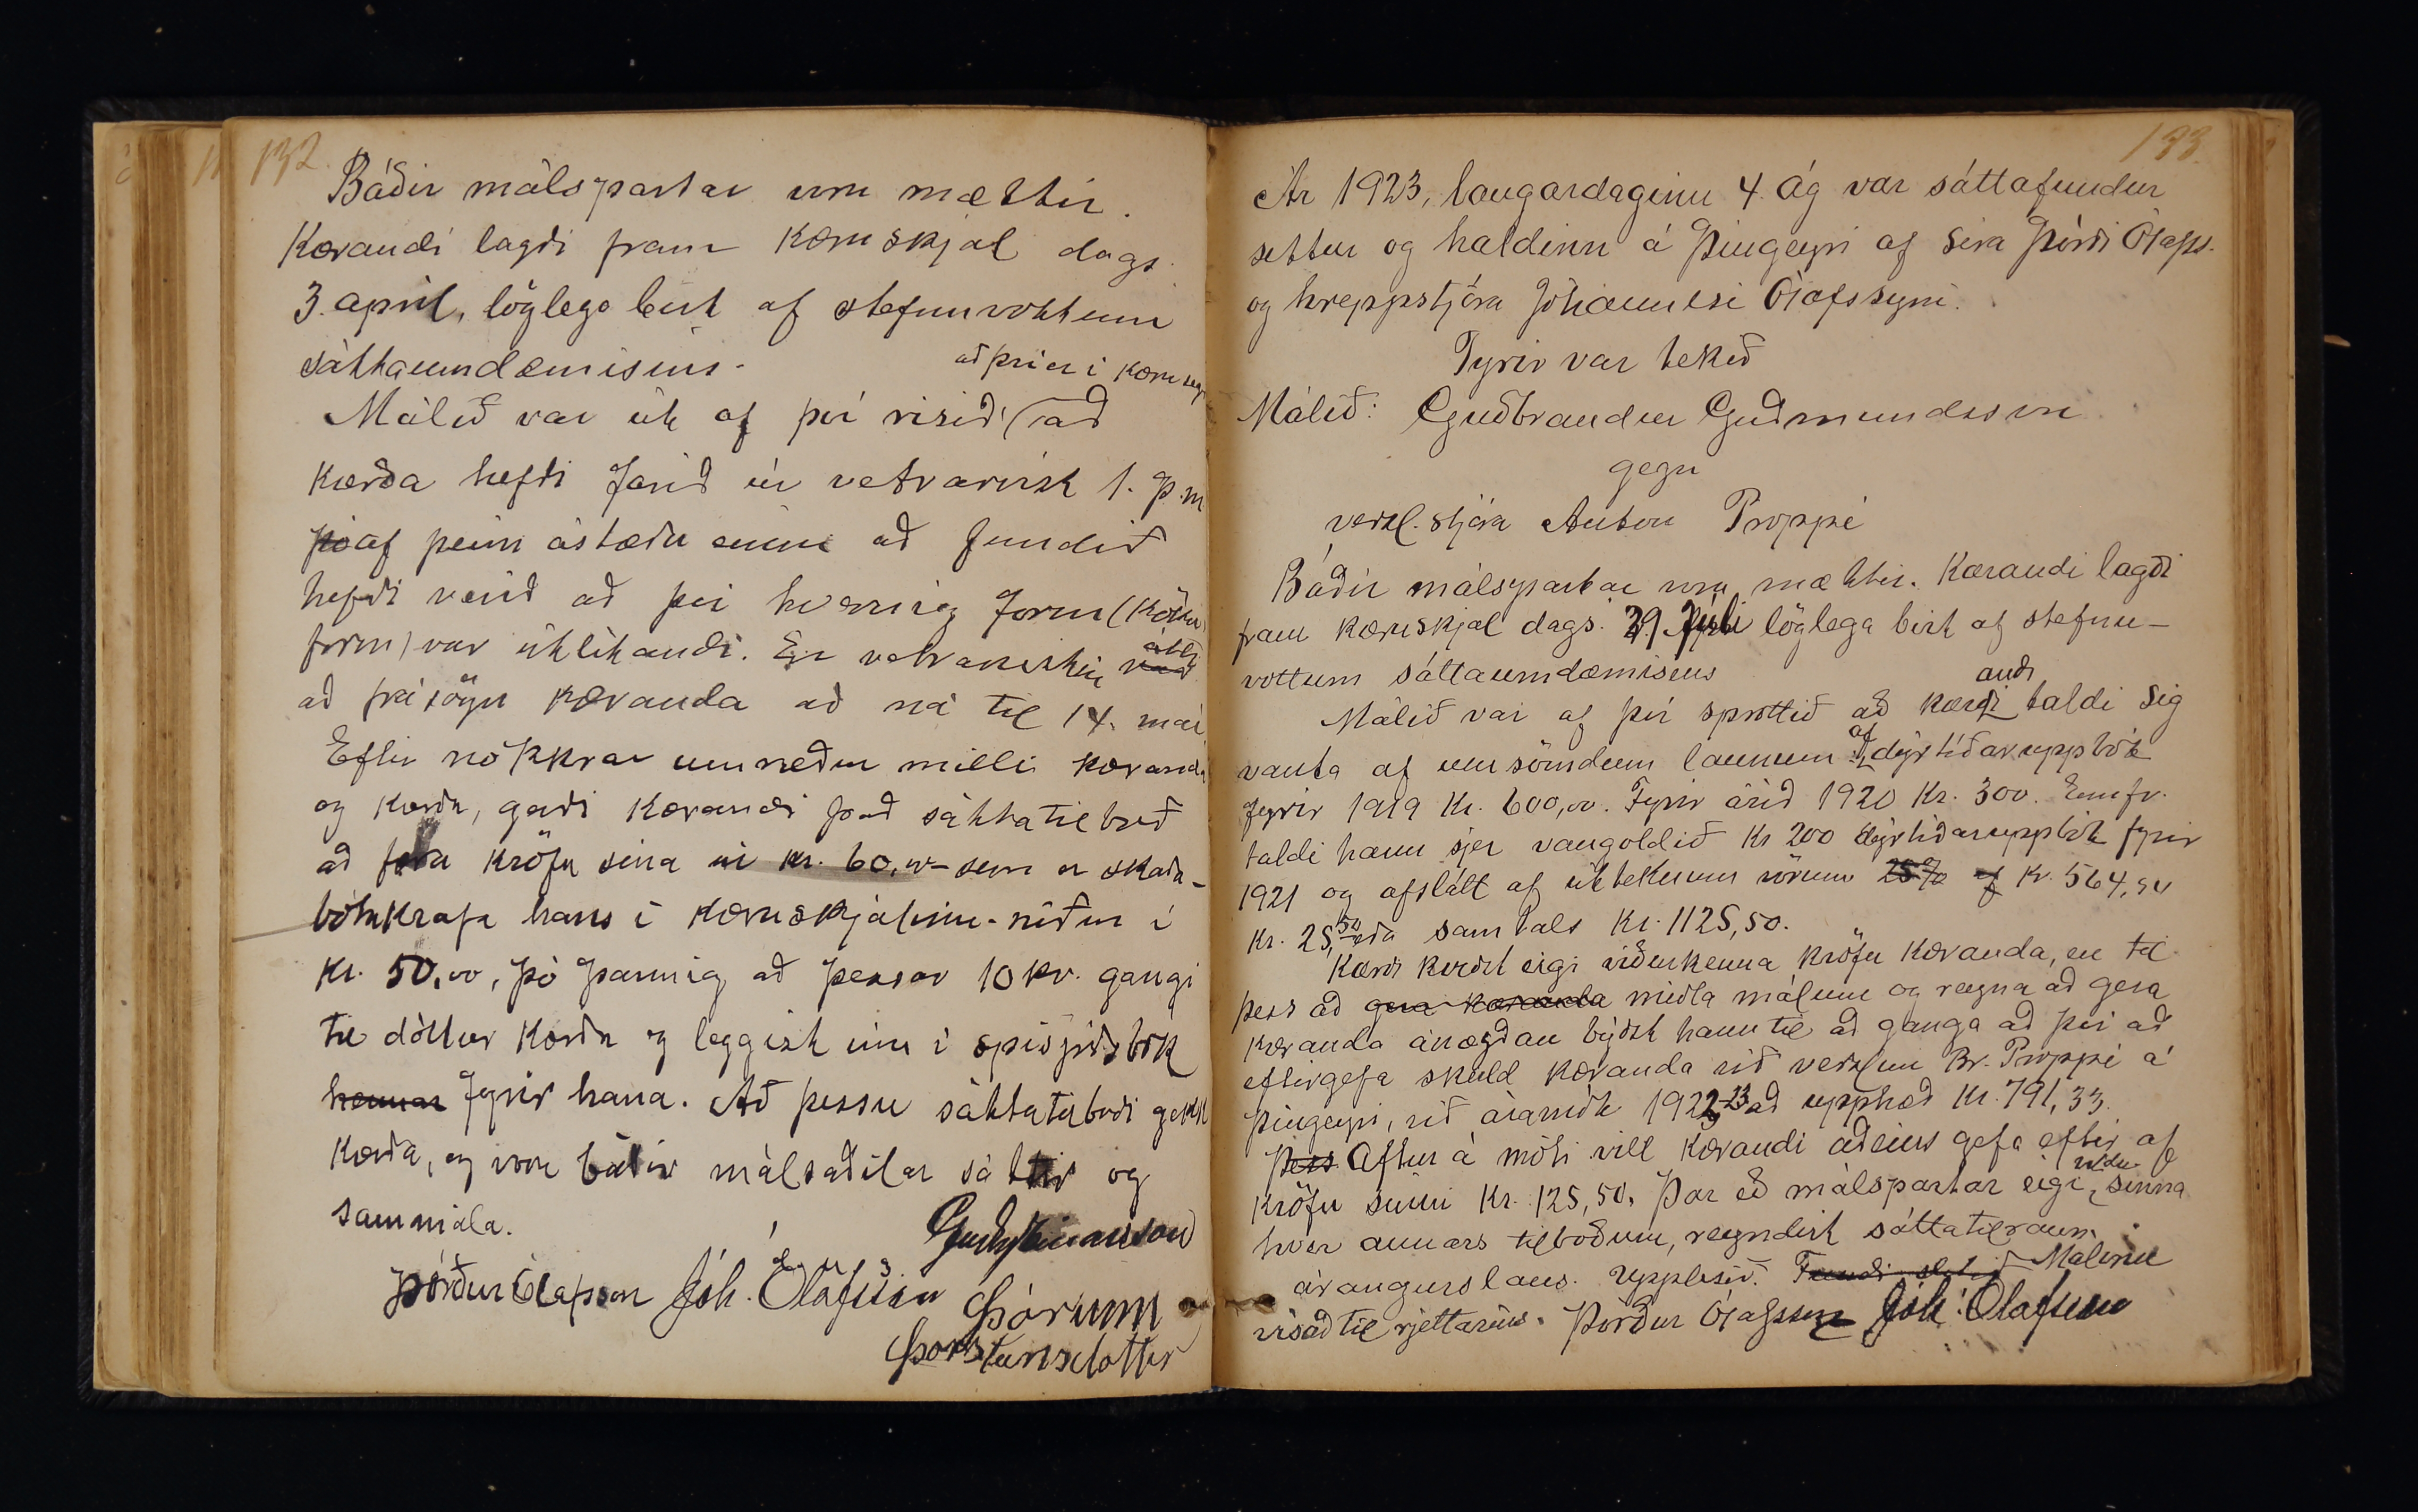 132.
Báðir málspartar vom mættir.
Kærandi lagði fram Kæruskjal dags.
3. apríl, löglega birt af stefnuvottum
sáttaumdæmisins.
að því er í kæru segir
Málið var út af því risið, (að
kærða hefði farið úr vetrarvist 1. þ.m
þó af þeirri ástæðu einni að fundið
hefði verið að því hvernig form (köku
form) var útlítandi. En vetrarvistin átti
að frásögn kæranda að ná til 14. maí
Eftir nokkrar umræður milli kæranda
og kærðu, gerði kærandi það sáttatilboð
að færa kröfu sína úr kr. 60,00 - sem er skaða-
bótakrafa hans í kæruskjalinu - niður í
kr. 50,00, þó þannig að þessar 10 kr. gangi
til dóttur kærðu og leggist inn í sparisjóðsbók
hennar fyrir hana. Að þessu sáttatilboði gekk
kærða, og voru báðir málsaðilar sáttir og
sammála.
Þórður Ólafsson Jóh. Ólafsson
Þórunn
Þorsteinsdóttir
133.
Ár 1923, laugardaginn 4. ág var sáttafundur
settur og haldinn á Þingeyri af síra Þórði Ólafss.
og hreppstjóra Jóhannesi Ólafssyni.
Fyrir var tekið
Málið: Guðbrandur Guðmundsson
gegn
verzl.stjóra Anton Proppé
Báðir málspartar voru mættir. Kærandi lagði
fram kæruskjal dags. 29. Júlí löglega birt af stefnu-
vottum sáttaumdæmisins
andi
Málið var af því sprottið að kærði taldi sig
vanta af umsömdum launum af dýrtíðaruppbót
fyrir 1919 Kr. 600,00. Fyrir árið 1920 Kr. 300. Ennfr.
taldi hann sjer vangoldið Kr 200 dýrtíðaruppbót fyrir
1921 og afslátt af úttekinni vörum 25% af kr. 564,
Kr. 25,50 eða samtals Kr. 1125,50.
Kærði kveðst eigi viðurkenna kröfu kæranda, en til
þess að gera kæranda miðla málum og reyna að gera
kæranda ánægðan býðst hann til að ganga að því að
eftirgefa skuld kæranda við verzlun Br. Proppé á
Þingeyri, við áramót 1922-23 að upphæð Kr. 791,33.
Þess Aftur á móti vill kærandi aðeins gefa eftir af
kröfu sinni Kr. 125,50. Þar eð málspartar eigi vildu sinna
hver annars tilboðum, reyndist sáttatilraun
árangurslaus. Upplesið. Fundi slitið Málinu
vísað til rjettarins. Þórður Ólafsson Jóh. Ólafsson